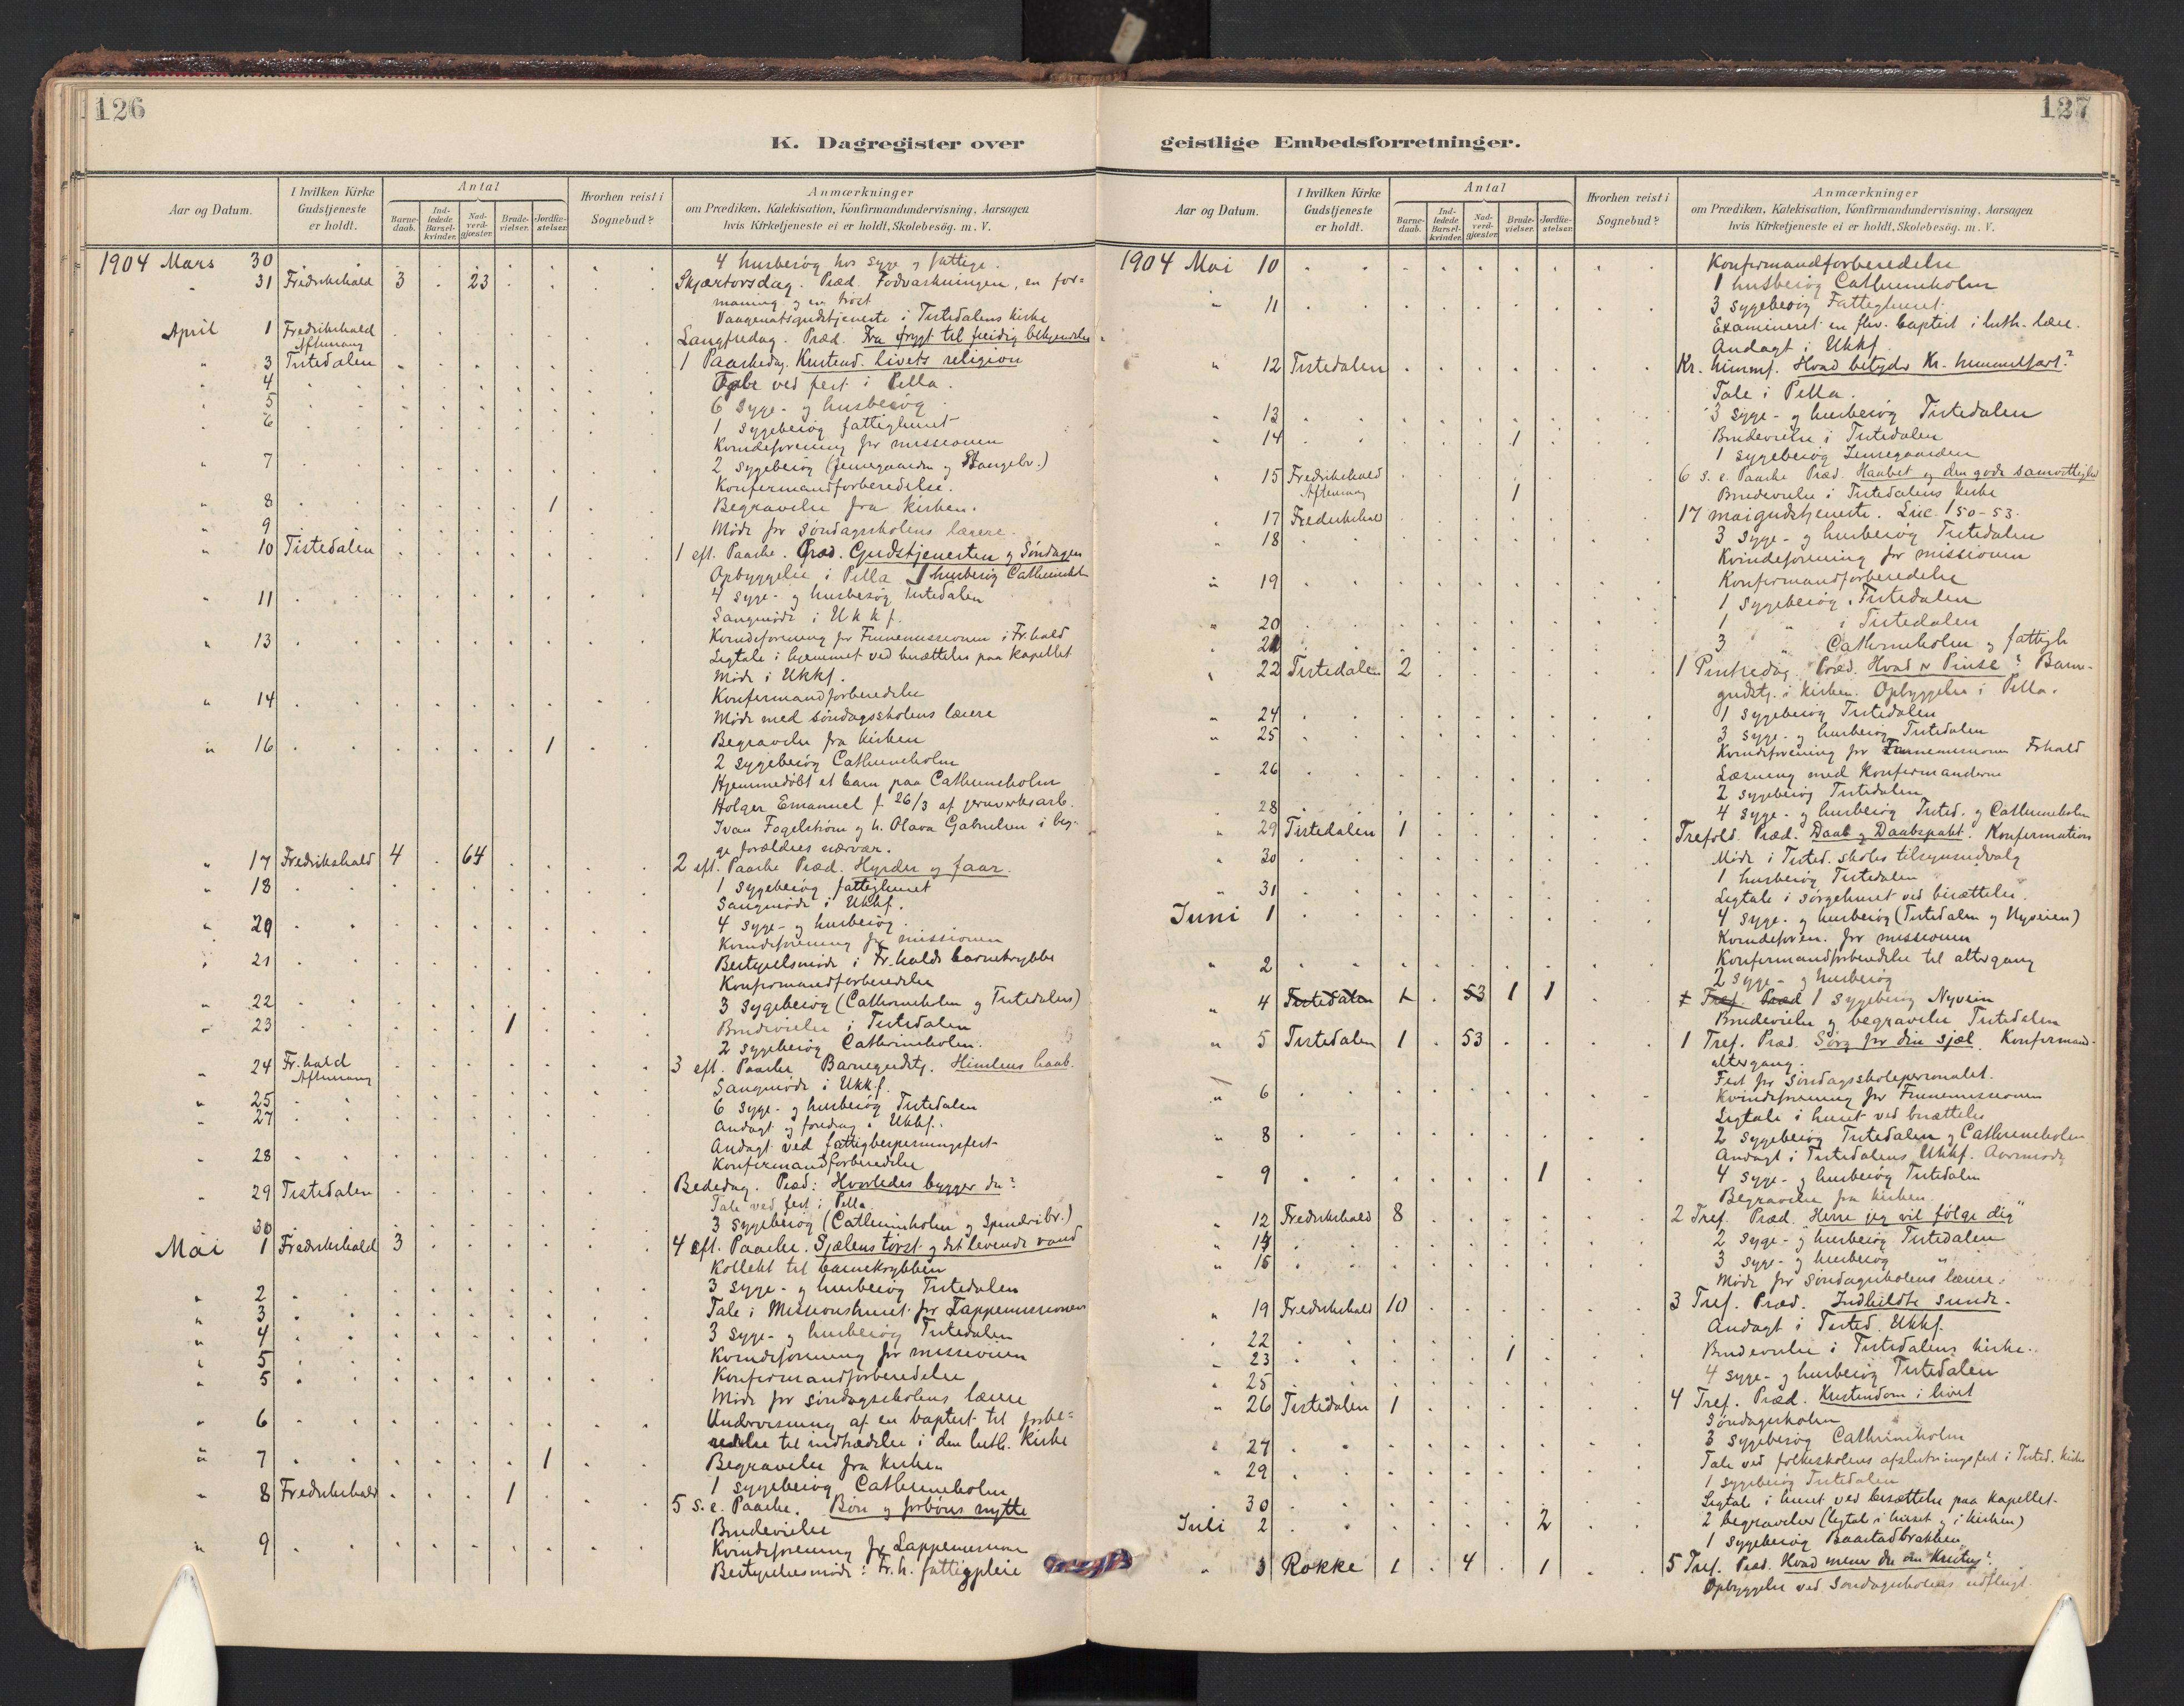 126
K. Dagregister over
Aar og Datum. I hvilken Kirke Gudstjeneste er holdt. Antal Barnedaab. Indledede Barselkvinder. Nadverdgjæster. Brudevielser. Jordfæstelser. Hvorhen reist i Sognebud? Anmærkninger om Prædiken, Katekisation, Konfirmandundervisning, Aarsagen hvis Kirketjeneste ei er holdt, Skolebesög. m. V.
1904 Mars 30 4 husbesøg hos syge og fattige.
" 31 Fredrikshald 3 . 23 Skjærtorsdag. Præd. Fodvaskningen, en for=
maning og en trøst
Vaagenatsgudstjeneste i Tistedalens kirke
April 1 Fredrikshald Langfredag. Præd. Fra frygt til freidig bekjendelse
Aftensang
" 3 Tistedalen 1 Paaskedag. Kristend. livets religion
" 4 Tale ved fest i Pella.
" 5 6 syge- og husbesøg
" 6 1 sygebesøg fattighuset
Kvindeforening for missionen
" 7 2 sygebesøg (Jernegaarden og Stangebr.)
Konfirmandforberedelse.
" 8 1 Begravelse fra kirken.
" 9 Møde for søndagsskolens lærere.
" 10 Tistedalen 1 eft. Paaske. Præd. Gudstjenesten og Søndagen
Opbyggelse i Pella 1 husbesøg Cathrineh.
" 11 4 syge- og husbesøg Tistedalen
Sangmøde i Ukkf.
" 13 Kvindeforening for Finnemissionen i Fr.hald
Ligtale i hjemmet ved bisættelse paa kapellet
Møde i Ukkf.
" 14 Konfirmandforberedelse
Møde med søndagsskolens lærere
" 16 1 Begravelse fra kirken
2 sygebesøg Cathrineholm
Hjemmedøbt et barn paa Cathrineholm
Holger Emanuel f. 26/3 af jernverksarb.
Ivan Fogelstrøm og h. Olava Gabrielsen i beg-
ge forældres nærvær.
" 17 Fredrikshald 4 . 64 2 eft. Paaske Præd. Hyrder og faar.
" 18 1 sygebesøg fattighuset
Sangmøde i Ukkf.
" 20 4 syge- og husbesøg.
Kvindeforening for missionen
" 21 Bestyrelsmøde i Fr.halds barnekrybbe
Konfirmandforberedelse
" 22 3 sygebesøg (Cathrineholm og Tistedalen)
" 23 1 Brudevielse i Tistedalen
2 sygebesøg Cathrineholm.
" 24 Fr.hald 3 eft. Paaske Barnegudstj. Himlens haab.
Aftensang
Sangmøde i Ukkf.
" 25 6 syge- og husbesøg Tistedalen
" 27 Andagt og foredrag i Ukkf.
Andagt ved fattigbespisningsfest
" 28 Konfirmandforberedelse
" 29 Tistedalen Bededag. Præd: Hvorledes bygger du?
Tale ved fest i Pella
30 3 sygebesøg (Cathrineholm og Spinderibr.)
Mai 1 Fredrikshald 3 4 eft. Paaske. Sjælens tørst og det levende vand
Kollekt til barnekrybben
" 2 3 syge- og husbesøg Tistedalen
" 3 Tale i Missionshuset for Lappemissionen
" 4 3 syge- og husbesøg Tistedalen
" 5 Kvindeforening for missionen
" 5 Konfirmandforberedelse
Møde for søndagsskolens lærere
" 6 Undervisning af en baptist til forbe=
redelse til indtrædelse i den luth. kirke
" 7 1 Begravelse fra kirken
1 sygebesøg Cathrineholm
" 8 Fredrikshald 1 5 s. e. Paaske. Bøn og forbøns nytte
Brudevielse
" 9 Kvindeforening for Lappemission
Bestyrelsesmøde i Fr.h. fattigpleie
127
geistlige Embedsforretninger.
Aar og Datum. I hvilken Kirke Gudstjeneste er holdt. Antal Barnedaab. Indledede Barselkvinder. Nadverdgjæster. Brudevielser. Jordfæstelser. Hvorhen reist i Sognebud? Anmærkninger om Prædiken, Katekisation, Konfirmandundervisning, Aarsagen hvis Kirketjeneste ei er holdt, Skolebesög. m. V.
1904 Mai 10 Konfirmandforberedelse
1 husbesøg Cathrineholm
" 11 3 sygebesøg Fattighuset.
Examineret en fhv. baptist i luth. lære.
Andagt i Ukkf.
" 12 Tistedalen Kr. himmf. Hvad betyder Kr. himmelfart?
Tale i Pella.
" 13 3 syge- og husbesøg Tistedalen
" 14 1 Brudevielse i Tistedalen
1 sygebesøg Jernegaarden
" 15 Fredrikshald 6 s. e. Paaske Præd. Haabet og den gode samvittighed
Aftensang 1 Brudevielse i Tistedalens kirke
" 17 Fredrikshald 17 maigudstjeneste. Luc. 1 50-53.
" 18 3 syge- og husbesøg Tistedalen
Kvindeforening for missionen
" 19 Konfirmandforberedelse
1 sygebesøg i Tistedalen
" 20 1 " i Tistedalen
" 21 3 " Cathrineholm og fattigh
" 22 Tistedalen 2 1 Pinsedag. Præd. Hvad er Pinse? Barne-
gudstj. i kirken. Opbyggelse i Pella.
" 24 1 sygebesøg Tistedalen
" 25 3 syge- og husbesøg Tistedalen
Kvindeforening for Finnemissionen Frhald
" 26 Læsning med konfirmanderne
2 sygebesøg Tistedalen
" 28 4 syge- og husbesøg Tisted. og Cathrineholm
" 29 Tistedalen 1 Trefold. Præd. Daab og Daabspakt. Konfirmation
" 30 Møde i Tisted. skoles tilsynsudvalg
1 husbesøg Tistedalen
" 31 Ligtale i sørgehuset ved bisættelse.
Juni 1 4 syge- og husbesøg (Tistedalen og Nyveien)
Kvindeforen. for missionen
" 2 Konfirmandforberedelse til altergang
2 syge- og husbesøg
" 4 Tistedalen 1 . 53 1 1 1 Tref. Præd 1 sygebesøg Nyveien
Brudevielse og begravelse Tistedalen
" 5 Tistedalen 1 . 53 1 Tref. Præd. Sørg for din sjæl. Konfirmand-
altergang.
Fest for søndagsskolepersonalet.
" 6 Kvindeforening for Finnemissionen
Ligtale i huset ved bisættelse
" 8 2 sygebesøg Tistedalen og Cathrineholm
Andagt i Tistedalens Ukkf.
" 9 1 4 syge- og husbesøg Tistedalen
Begravelse fra kirken.
" 12 Fredrikshald 8 2 Tref. Præd. "Herre jeg vil følge dig"
" 14 2 syge- og husbesøg Tistedalen
" 15 3 syge- og husbesøg "
Møde for søndagsskolens lærere.
" 19 Fredrikshald 10 3 Tref. Præd. Indbildte sunde.
Andagt i Tisted. Ukkf.
" 22
" 23 1 Brudevielse i Tistedalens kirke.
" 25 4 syge- og husbesøg Tistedalen
" 26 Tistedalen 1 4 Tref. Præd. Kristendom i livet
Søndagsskolen
" 27 3 sygebesøg Cathrineholm
" 29 Tale ved folkeskolens afslutningsfest i Tisted. kirke
1 sygebesøg Tistedalen
" 30 Ligtale i huset ved bisættelse paa kapellet.
Juli 2 2 2 begravelser (ligtale i huset og i kirken)
1 sygebesøg Baastadbrakken
" 3 Rokke 1 . 4 . 1 5 Tref. Præd. Hvad mener du om Kristus?
Opbyggelse ved Søndagsskolens udflugt.